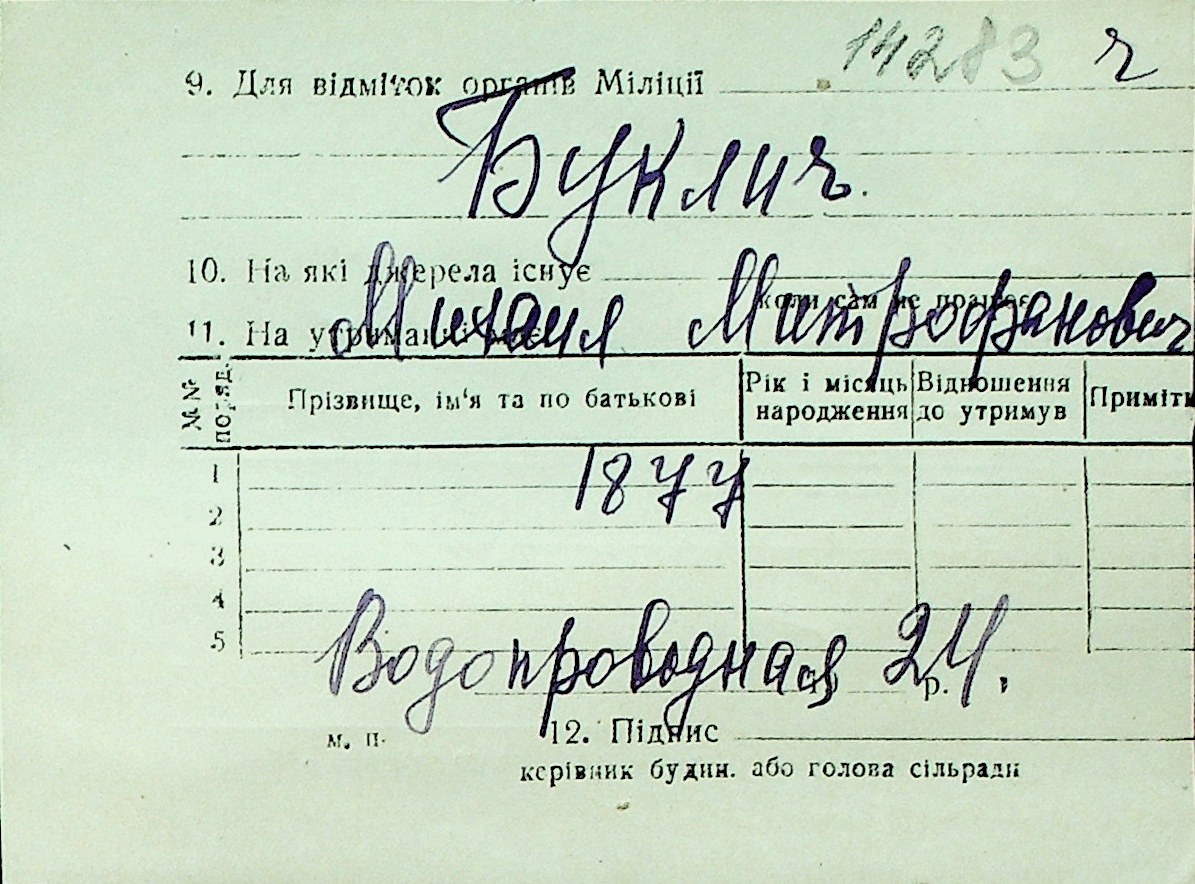 14283 г
9. Для відміток органів Міліції
Буклич.
10. На які джерела існує
коли сам не працює
Михаил Митрофанович
11. На утриманні має
№№ поряд.
Прізвище, ім‘я та по батькові
Рік і місяць народження
Відношення до утримув
Примітк
1
1877
2
3
4
5
Водопроводная 24.
р.
м. п.
12. Підпис
керівник будин. або голова сільради